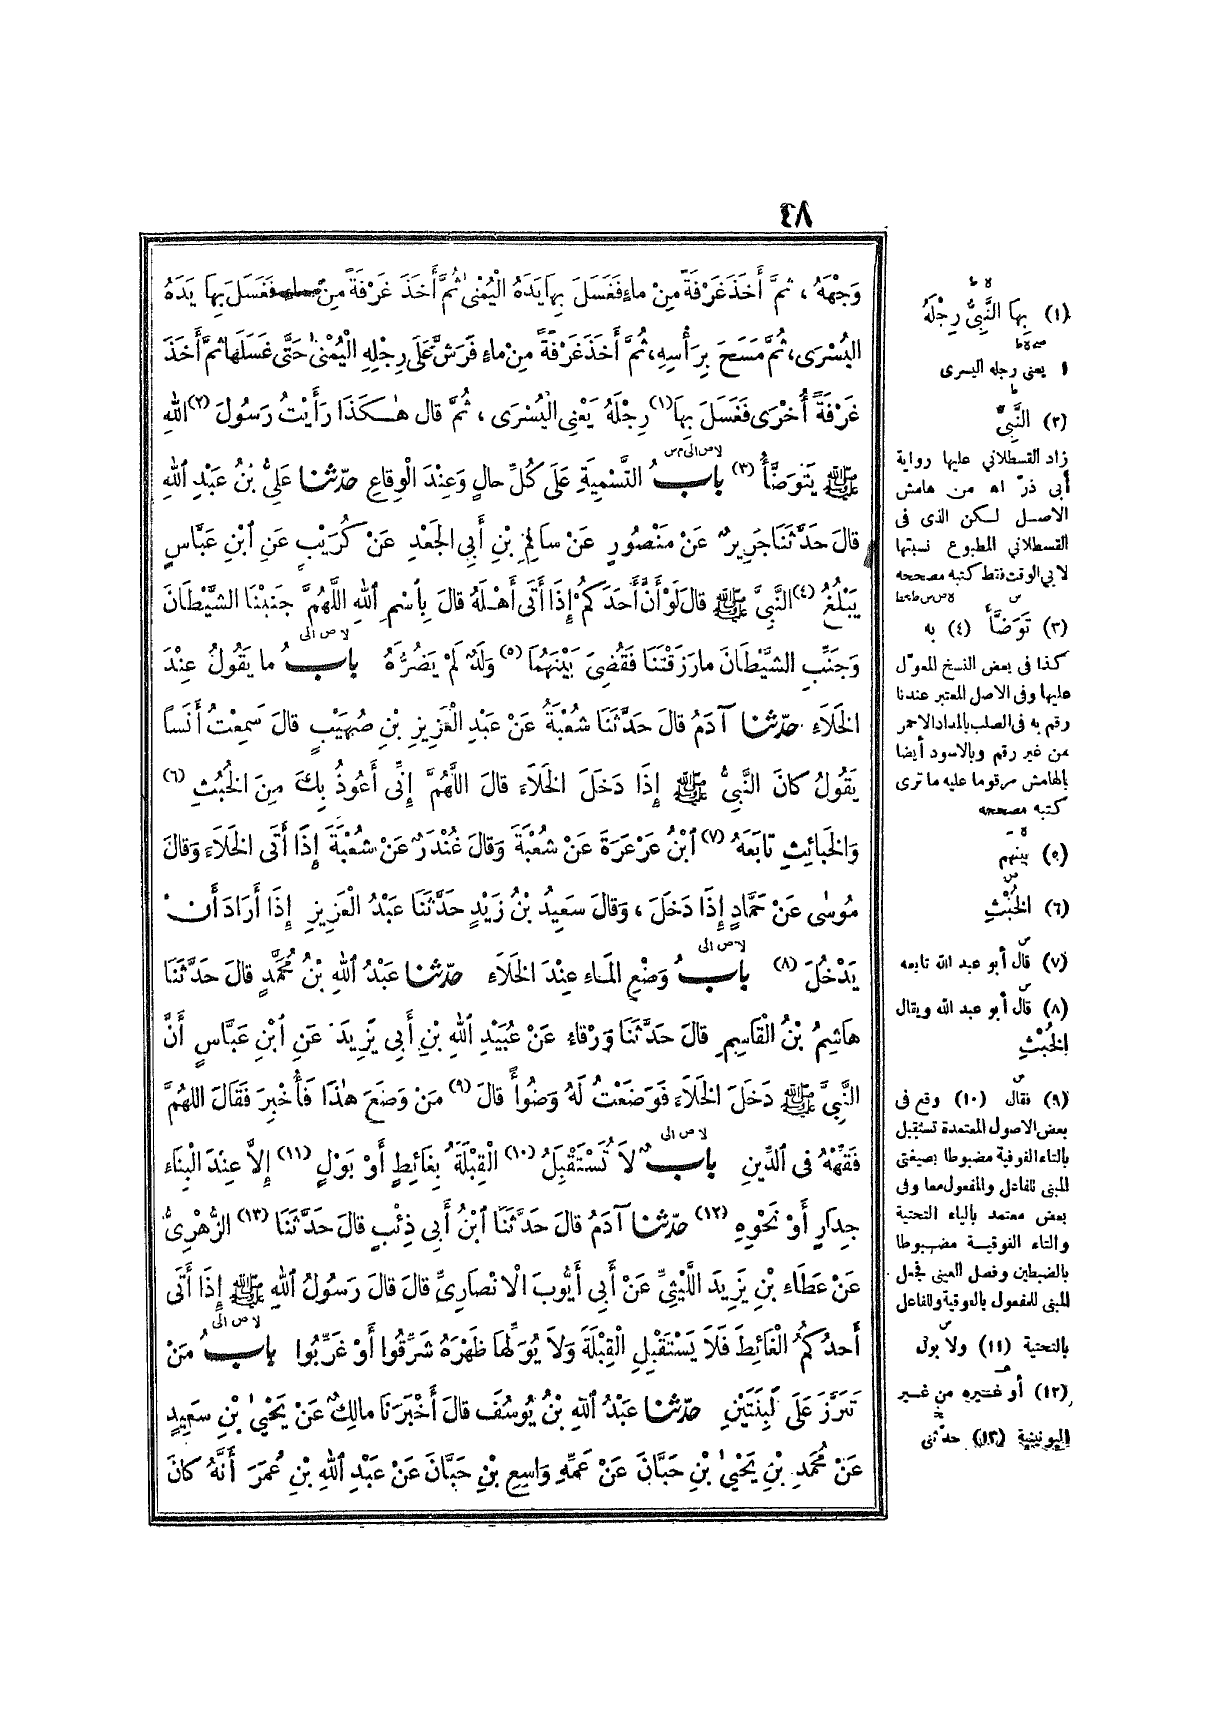 ٤٨
وَجْهَهُ ، ثُمَّ أَخَذَ غَرْفَةً مِنْ مَاءٍ فَغَسَلَ بِهَا يَدَهُ الْيُمْنَى ثُمَّ أَخَذَ غَرْفَةً مِنْ مَاءٍ فَغَسَلَ بِهَا يَدَهُ
الْيُسْرَى، ثُمَّ مَسَحَ بِرَأْسِهِ، ثُمَّ أَخَذَ غَرْفَةً مِنْ مَاءٍ فَرَشَّ عَلَى رِجْلِهِ الْيُمْنَى حَتَّى غَسَلَهَا ثُمَّ أَخَذَ
غَرْفَةً أُخْرَى فَغَسَلَ بِهَا (١) رِجْلَهُ يَعْنِي الْيُسْرَى ، ثُمَّ قَالَ هٰكَذَا رَأَيْتُ رَسُولَ (٢) اللهِ
لا ص الى م س
ﷺ يَتَوَضَّأُ (٣) بابُ التَّسْمِيَةِ عَلَى كُلِّ حَالٍ وَعِنْدَ الْوِقَاعِ حدّثنا عَلِيُّ بْنُ عَبْدِ اللهِ
قَالَ حَدَّثَنَا جَرِيرٌ عَنْ مَنْصُورٍ عَنْ سَالِمِ بْنِ أَبِي الْجَعْدِ عَنْ كُرَيْبٍ عَنِ ابْنِ عَبَّاسٍ
يَبْلُغُ (٤) النَّبِيَّ ﷺ قَالَ لَوْ أَنَّ أَحَدَكُمْ إِذَا أَتَى أَهْلَهُ قَالَ بِاسْمِ اللهِ اللَّهُمَّ جَنِّبْنَا الشَّيْطَانَ
لا ص الى
وَجَنِّبِ الشَّيْطَانَ مَا رَزَقْتَنَا فَقُضِيَ بَيْنَهُمَا (٥) وَلَدٌ لَمْ يَضُرَّهُ بابُ مَا يَقُولُ عِنْدَ
الْخَلَاءِ حدّثنا آدَمُ قَالَ حَدَّثَنَا شُعْبَةُ عَنْ عَبْدِ الْعَزِيزِ بْنِ صُهَيْبٍ قَالَ سَمِعْتُ أَنَسًا
يَقُولُ كَانَ النَّبِيُّ ﷺ إِذَا دَخَلَ الْخَلَاءَ قَالَ اللَّهُمَّ إِنِّي أَعُوذُ بِكَ مِنَ الْخُبُثِ (٦)
وَالْخَبَائِثِ تَابَعَهُ (٧) ابْنُ عَرْعَرَةَ عَنْ شُعْبَةَ وَقَالَ غُنْدَرٌ عَنْ شُعْبَةَ إِذَا أَتَى الْخَلَاءَ وَقَالَ
مُوسَى عَنْ حَمَّادٍ إِذَا دَخَلَ ، وَقَالَ سَعِيدُ بْنُ زَيْدٍ حَدَّثَنَا عَبْدُ الْعَزِيزِ إِذَا أَرَادَ أَنْ
لا ص الى
يَدْخُلَ (٨) بابُ وَضْعِ الْمَاءِ عِنْدَ الْخَلَاءِ حدّثنا عَبْدُ اللهِ بْنُ مُحَمَّدٍ قَالَ حَدَّثَنَا
هَاشِمُ بْنُ الْقَاسِمِ قَالَ حَدَّثَنَا وَرْقَاءُ عَنْ عُبَيْدِ اللهِ بْنِ أَبِي يَزِيدَ عَنِ ابْنِ عَبَّاسٍ أَنَّ
النَّبِيَّ ﷺ دَخَلَ الْخَلَاءَ فَوَضَعْتُ لَهُ وَضُوأً قَالَ (٩) مَنْ وَضَعَ هٰذَا فَأُخْبِرَ فَقَالَ اللَّهُمَّ
لا ص الى
فَقِّهْهُ فِي الدِّينِ بابٌ لَا تُسْتَقْبَلُ (١٠) الْقِبْلَةُ بِغَائِطٍ أَوْ بَوْلٍ (١١) إِلَّا عِنْدَ الْبِنَاءِ
جِدَارٍ أَوْ نَحْوِهِ (١٢) حدّثنا آدَمُ قَالَ حَدَّثَنَا ابْنُ أَبِي ذِئْبٍ قَالَ حَدَّثَنَا (١٣) الزُّهْرِيُّ
عَنْ عَطَاءِ بْنِ يَزِيدَ اللَّيْثِيِّ عَنْ أَبِي أَيُّوبَ الْأَنْصَارِيِّ قَالَ قَالَ رَسُولُ اللهِ ﷺ إِذَا أَتَى
لا ص الى
أَحَدُكُمُ الْغَائِطَ فَلَا يَسْتَقْبِلِ الْقِبْلَةَ وَلَا يُوَلِّهَا ظَهْرَهُ شَرِّقُوا أَوْ غَرِّبُوا بابُ مَنْ
تَبَرَّزَ عَلَى لَبِنَتَيْنِ حدّثنا عَبْدُ اللهِ بْنُ يُوسُفَ قَالَ أَخْبَرَنَا مَالِكٌ عَنْ يَحْيَى بْنِ سَعِيدٍ
عَنْ مُحَمَّدِ بْنِ يَحْيَى بْنِ حَبَّانَ عَنْ عَمِّهِ وَاسِعِ بْنِ حَبَّانَ عَنْ عَبْدِ اللهِ بْنِ عُمَرَ أَنَّهُ كَانَ
(١) بِهَا النَّبِيُّ رِجْلَهُ
١ يعنى رجله اليسرى
(٢) النَّبِيَّ
زاد القسطلاني عليها رواية
أبى ذرّ اه من هامش
الاصل لكن الذى فى
القسطلاني المطبوع نسبتها
لابي الوقت فقط كتبه مصححه
(٣) تَوَضَّأَ (٤) به
كذا فى بعض النسخ المعوّل
عليها وفى الاصل المعتبر عندنا
رقم به فى الصلب بالمداد الاحمر
من غير رقم وبالاسود أيضا
بالهامش مرقوما عليه ما ترى
كتبه مصححه
(٥) بينهم
(٦) الْخُبْثِ
(٧) قال أبو عبد الله تابعه
(٨) قال أبو عبد الله ويقال
الْخُبْثِ
(٩) فقال (١٠) وقع فى
بعض الاصول المعتمدة تستقبل
بالتاء الفوقية مضبوطا بصيغتى
المبنى للفاعل والمفعول معا وفى
بعض معتمد بالياء التحتية
والتاء الفوقية مضبوطا
بالضبطين وفصل العينى فجعل
المبنى للمفعول بالفوقية وللفاعل
بالتحتية (١١) ولا بول
(١٢) أو غيره من غير
اليونينية (١٣) حدّثنى